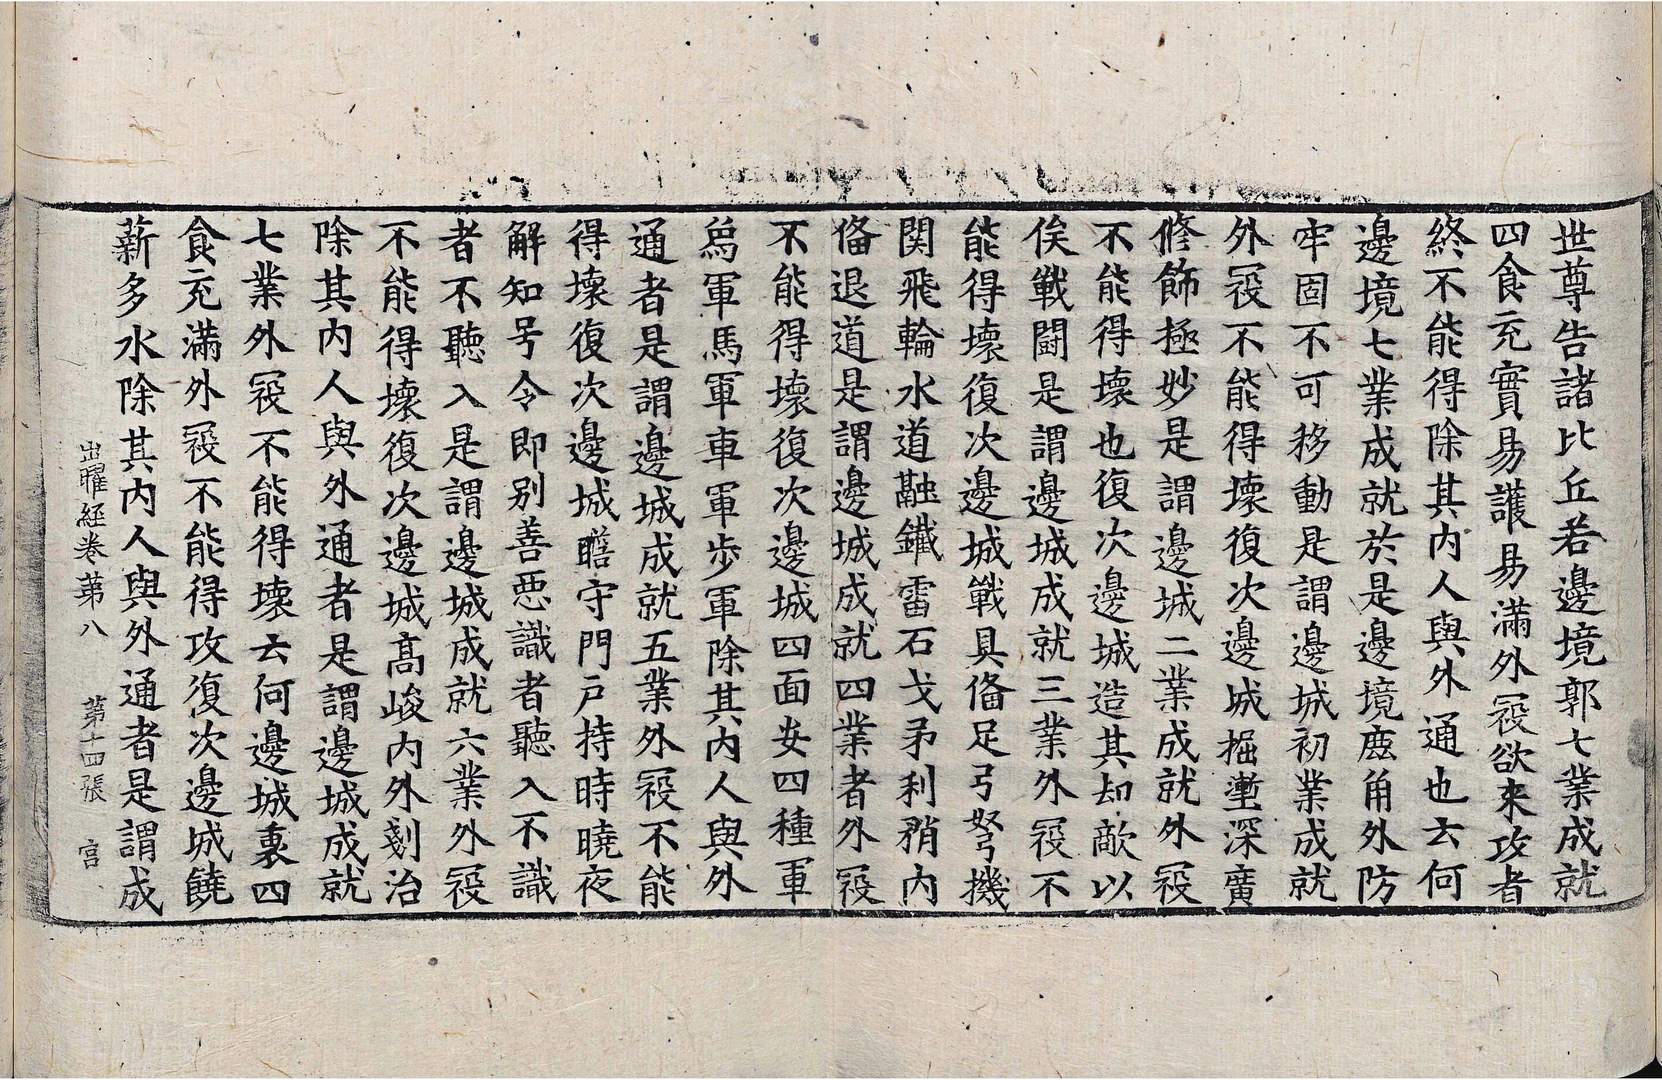 世尊告諸比丘若邊境郭七業成就
四食充實易護易滿外冦欲來攻者
終不能得除其內人與外通也云何
邊境七業成就於是邊境䴢角外防
牢固不可移動是謂邊城初業成就
外冦不能得壞復次邊城掘壍深廣
修飾極妙是謂邊城二業成就外冦
不能得壞也復次邊城造其却敵以
俟戰鬪是謂邊城成就三業外冦不
能得壞復次邊城戰具俻足弓弩機
関飛輪水道融鐵雷石戈矛利矟內
俻退道是謂邊城成就四業者外冦
不能得壞復次邊城四面安四種軍
烏軍馬軍車軍步軍除其內人與外
通者是謂邊城成就五業外冦不能
得壞復次邊城瞻守門戶持時曉夜
解知号令即別善惡識者聽入不識
者不聽入是謂邊城成就六業外冦
不能得壞復次邊城高峻內外剗治
除其內人與外通者是謂邊城成就
七業外冦不能得壞云何邊城裏四
食充滿外冦不能得攻復次邊城饒
薪多水除其內人與外通者是謂成
出曜經卷第八 第十四張 宮